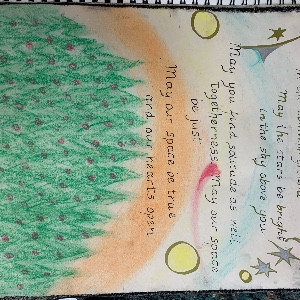 May the stars be bright
in the sky above you.
May you find solitude as well,
togetherness. May our space
be just
May our space be true
and our hearts open